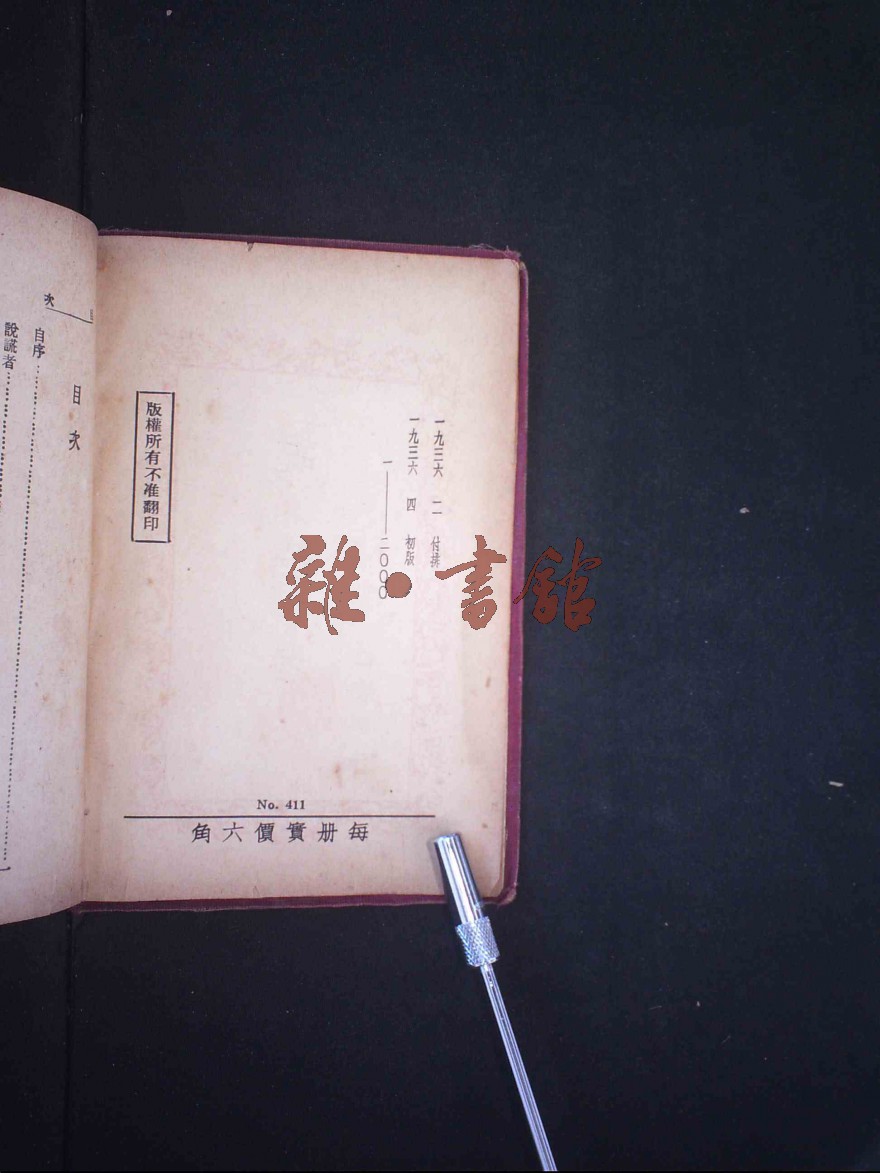 一九三六 二 付排
一九三六 四 初版
一——二〇〇〇
版權所有不准翻印
No. 411
每册實價六角
目次
自序
說謊者
次
雜·書館